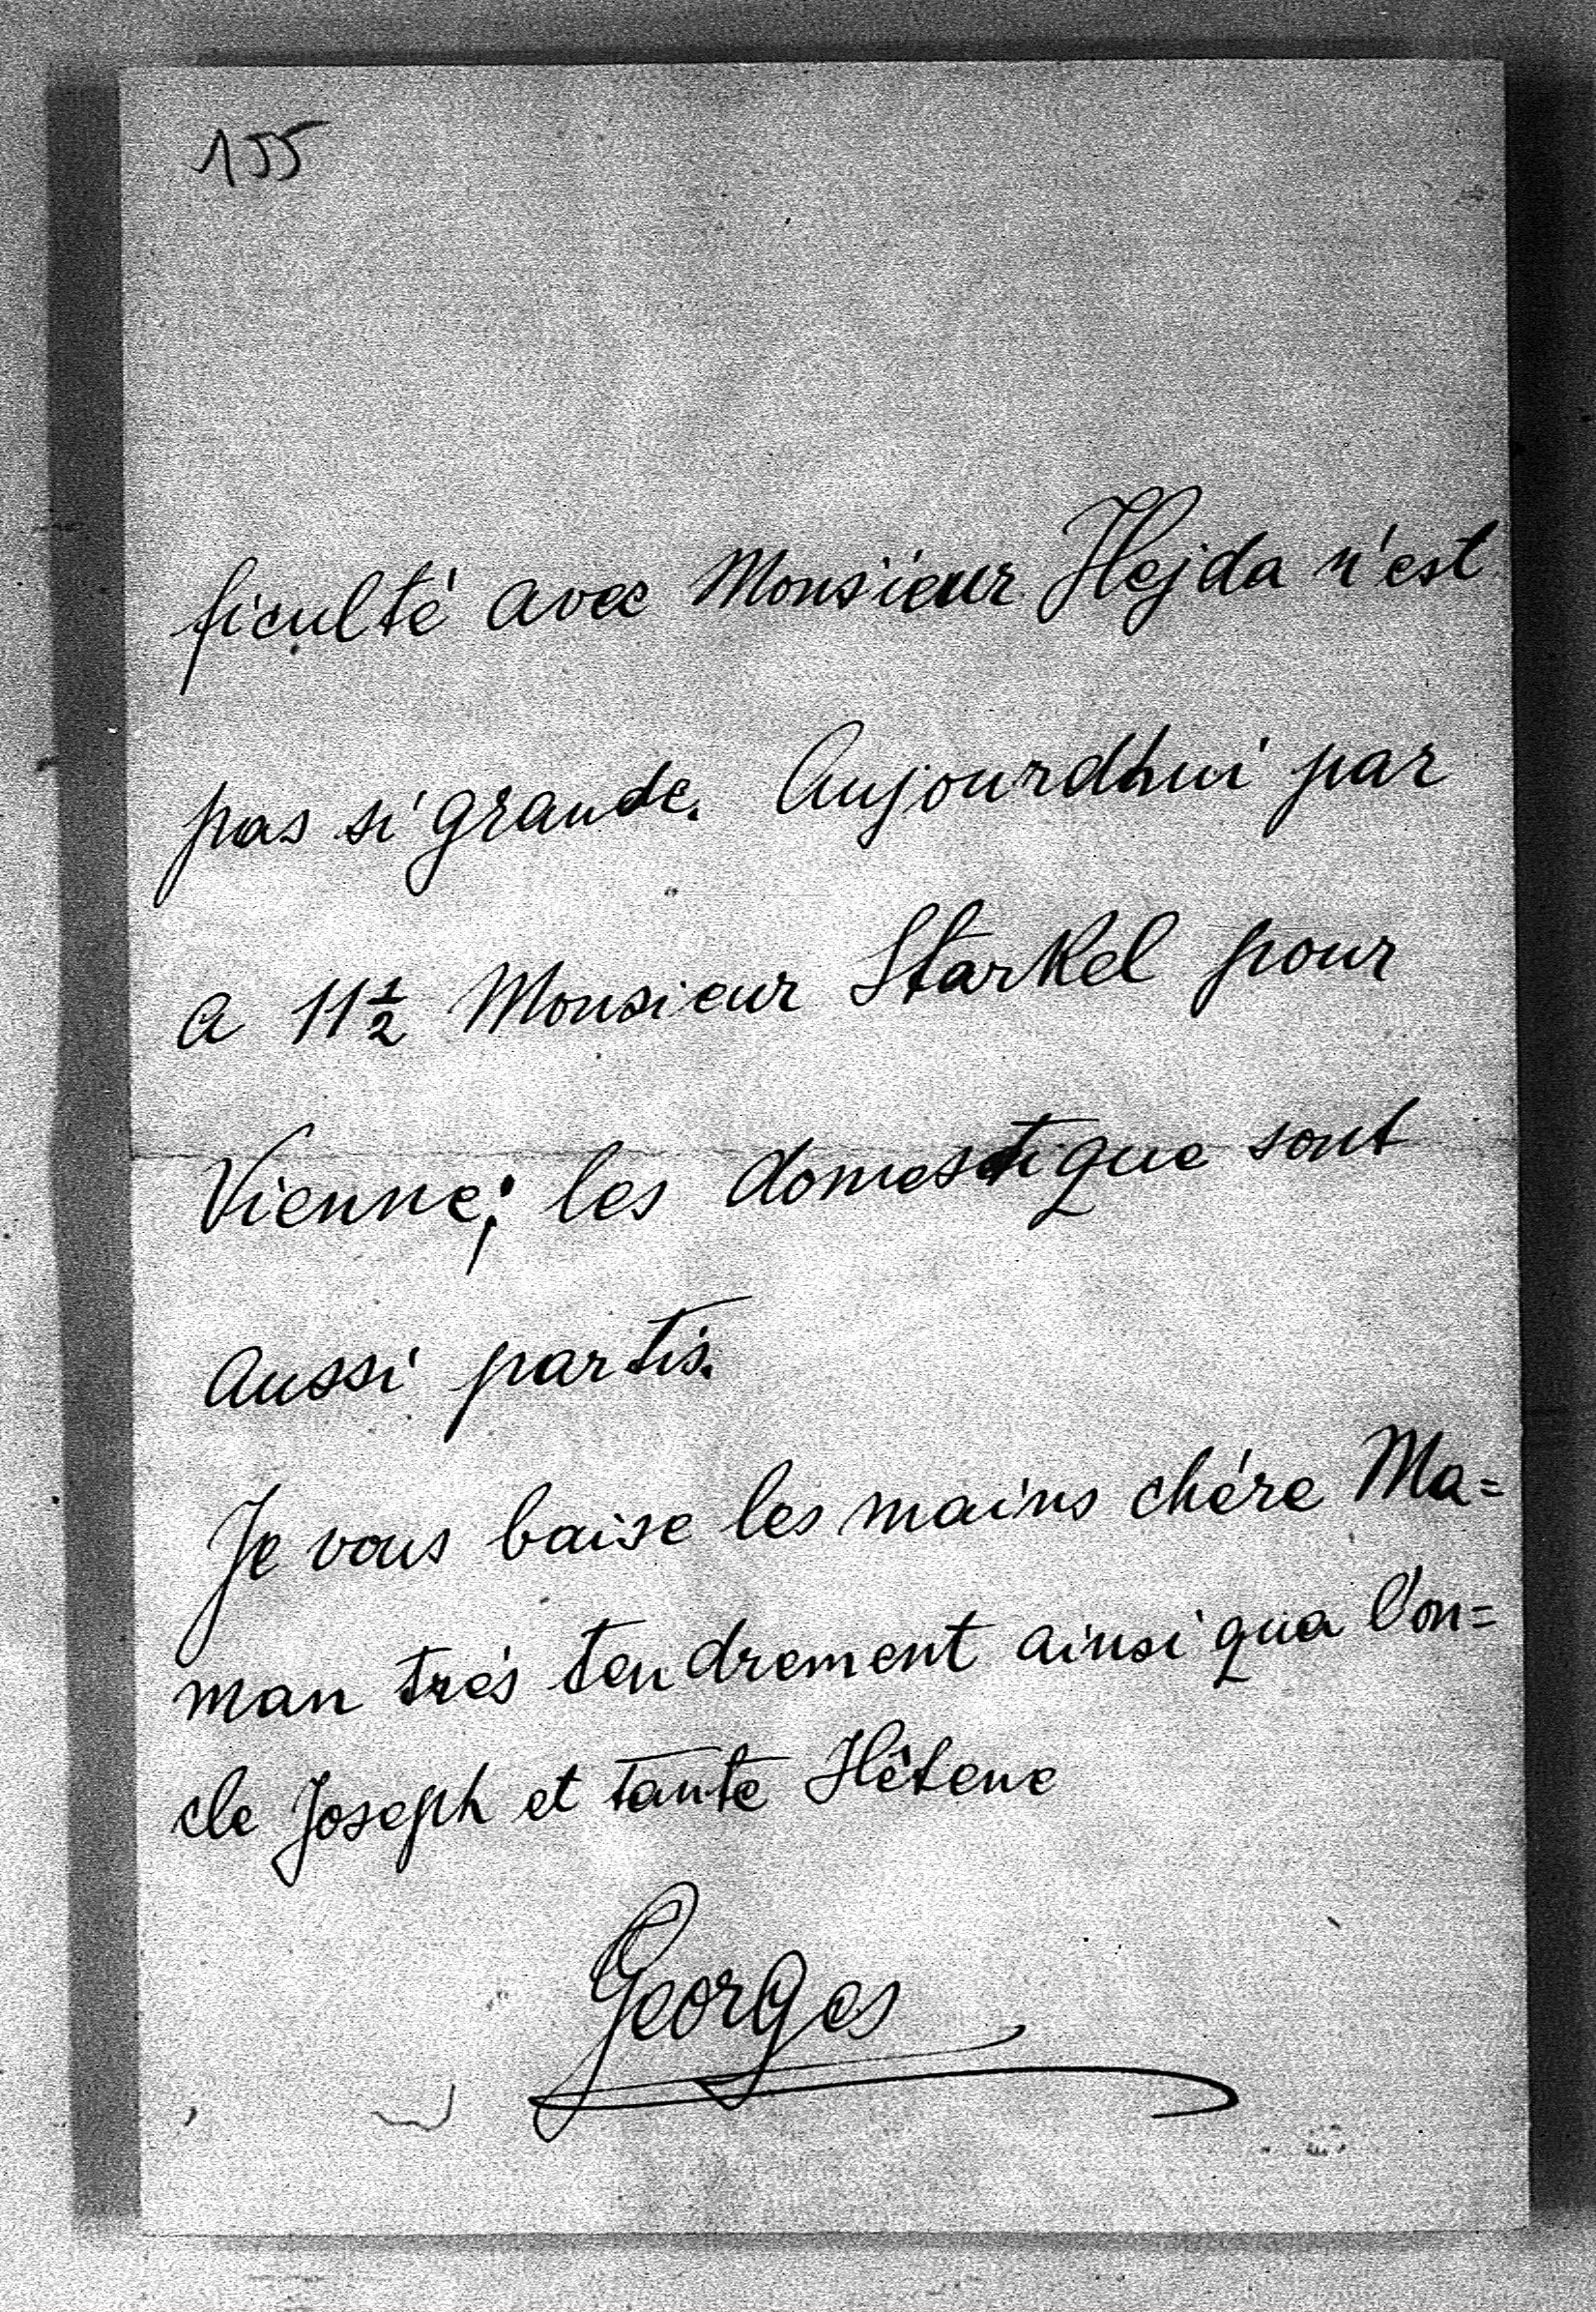 155
ficulté avec Monsieur Hejda n'est
pas si grande. Aujourdhui par
a 11½ Monsieur Starkel pour
Vienne; les domestique sont
aussi partis.
Je vous baise les mains chére Ma=
man trés tendrement ainsi qua l'on=
cle Joseph et tante Hêlene
Georges